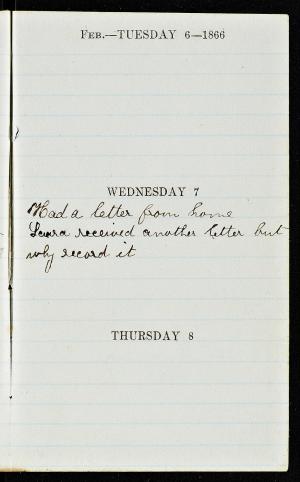 FEB.—TUESDAY 6—1866
WEDNESDAY 7
Had a letter from home
Laura received another letter but
why record it
THURSDAY 8